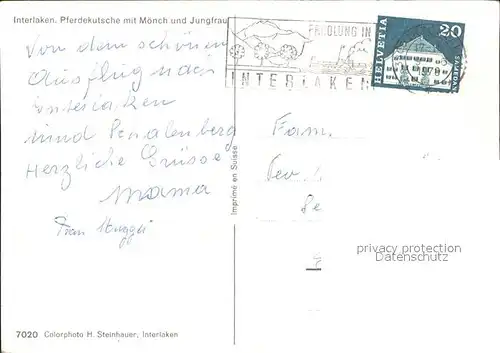 Interlaken. Pferdekutsche mit Mönch und Jungfrau
ERHOLUNG IN
INTERLAKEN
HELVETIA
20
SAMEDAN
1978
Von dem schönen
Ausflug nach
Interlaken
und
Herzliche Grüsse
Mama
Frau
Fam.
Imprimé en Suisse
privacy protection
Datenschutz
7020 Colorphoto H. Steinhauer, Interlaken